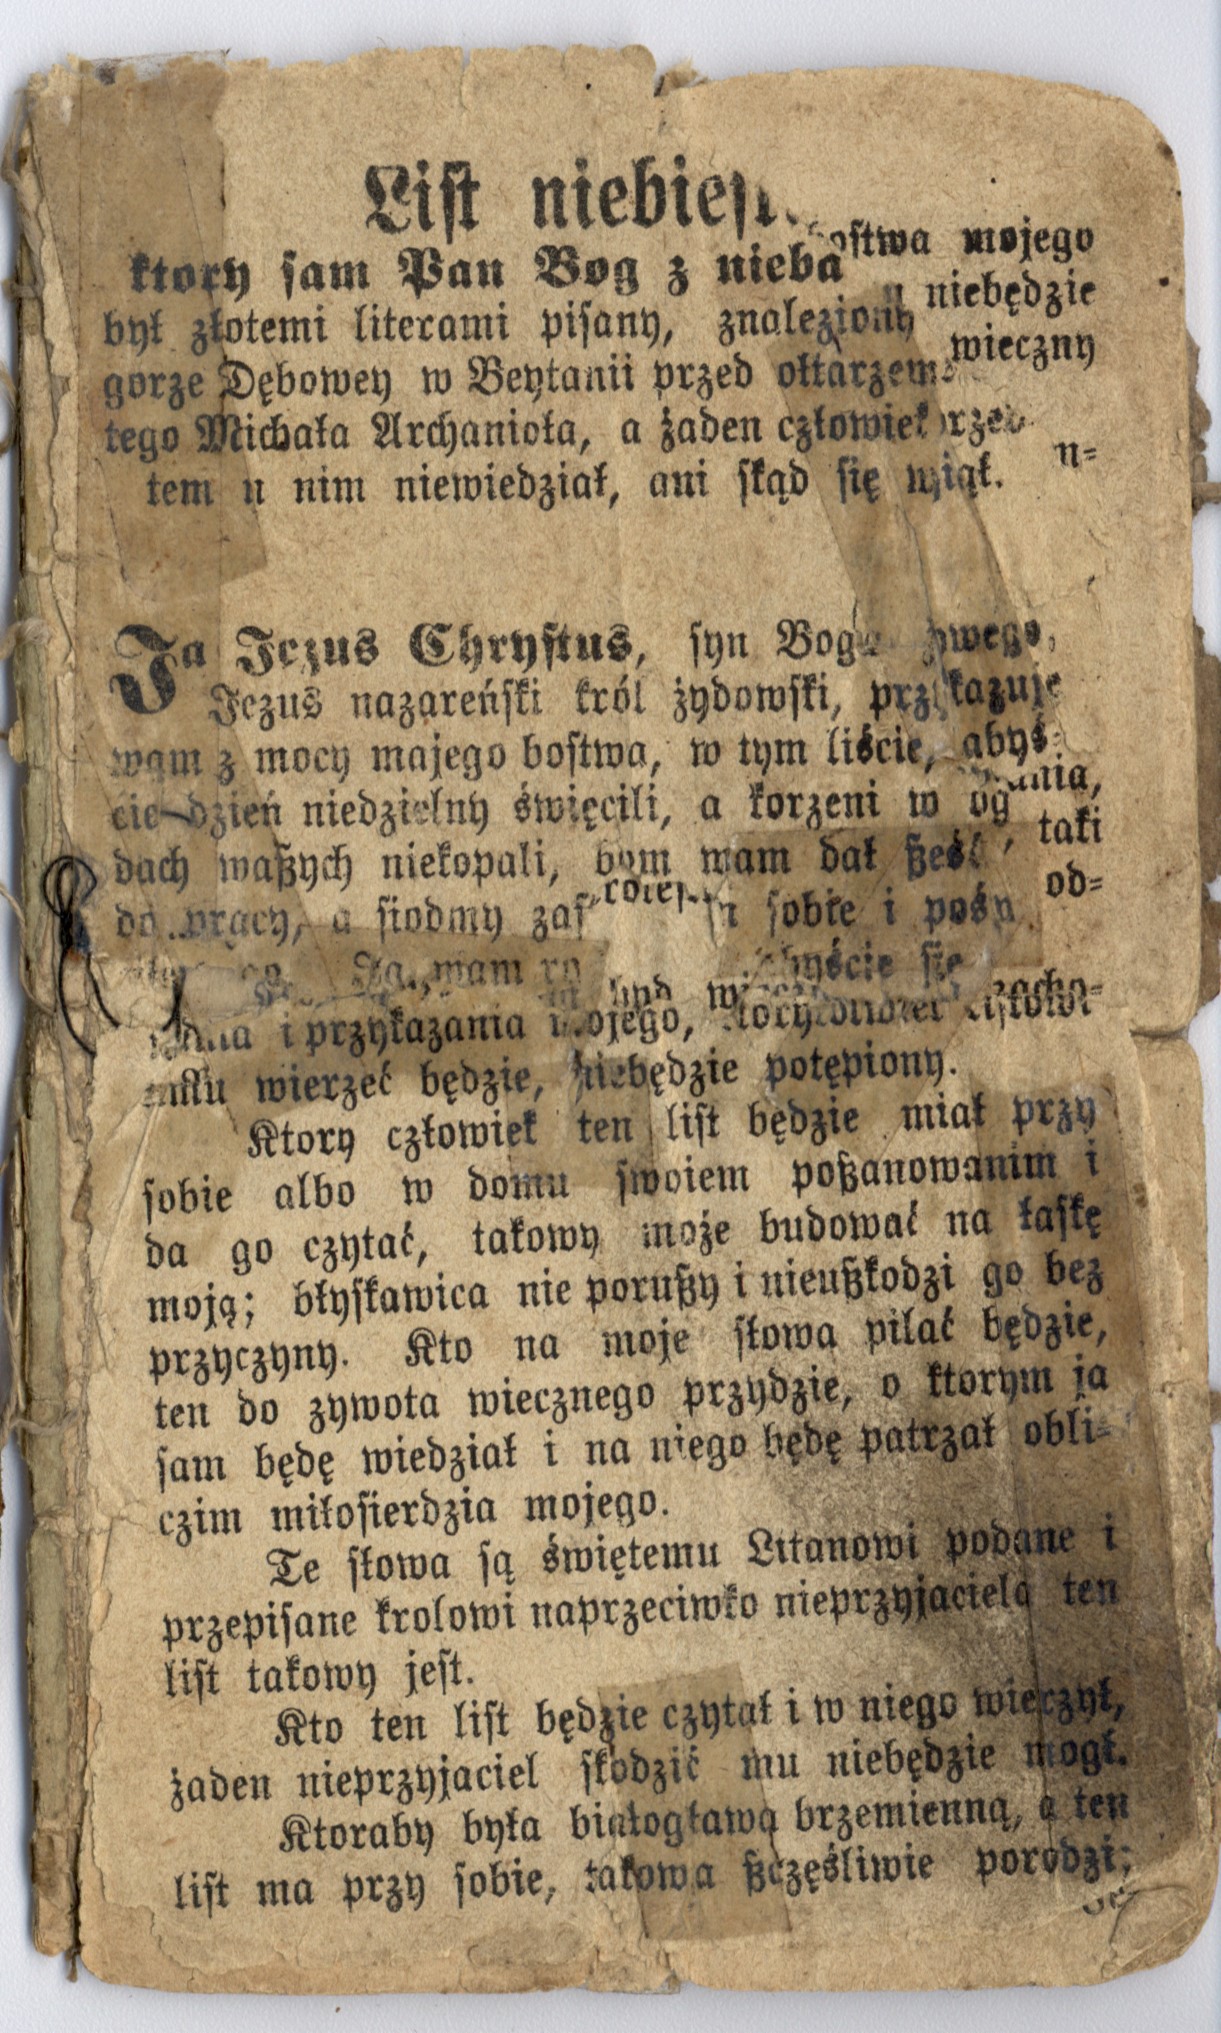 List
ktory sam Pan Bog z nieba
ostwa mojego
był złotemi literami pisany, znaleziony
niebędzie
gorze Dębowey w Beytanii przed ołtarzem
wieczny
tego Michała Archanioła, a żaden człowiek
tem n nim niewiedział, ani skąd się wziął.
n-
Ja Jezus Chrystus, syn
Jezus nazareński król żydowski, przykazuje
wam z mocy majego bostwa, w tym liście, abyś-
cie dzień niedzielny święcili, a korzeni w
taki
dach waszych niekopali, bom wam dał sześć
od-
do pracy, a siodmy sobie i
wam abyście się
i przykazania mojego,
wierzeć będzie, niebędzie potępiony.
Ktory człowiek ten list będzie miał przy
sobie albo w domu swoiem poszanowanim i
da go czytać, takowy może budować na łaskę
moją; błyskawica nie poruszy i nieuszkodzi go bez
przyczyny. Kto na moje słowa pilać będzie,
ten do zywota wiecznego przydzie, o ktorym ja
sam będę wiedział i na niego będę patrzał obli-
czim miłosierdzia mojego.
Te słowa są świętemu Litanowi podane i
przepisane krolowi naprzeciwko nieprzyjacielą ten
list takowy jest.
Kto ten list będzie czytał i w niego wierzył,
żaden nieprzyjaciel skodzić mu niebędzie mogł.
Ktoraby była białogławą brzemienną, a ten
list ma przy sobie, takowa szczęśliwie porodzi;